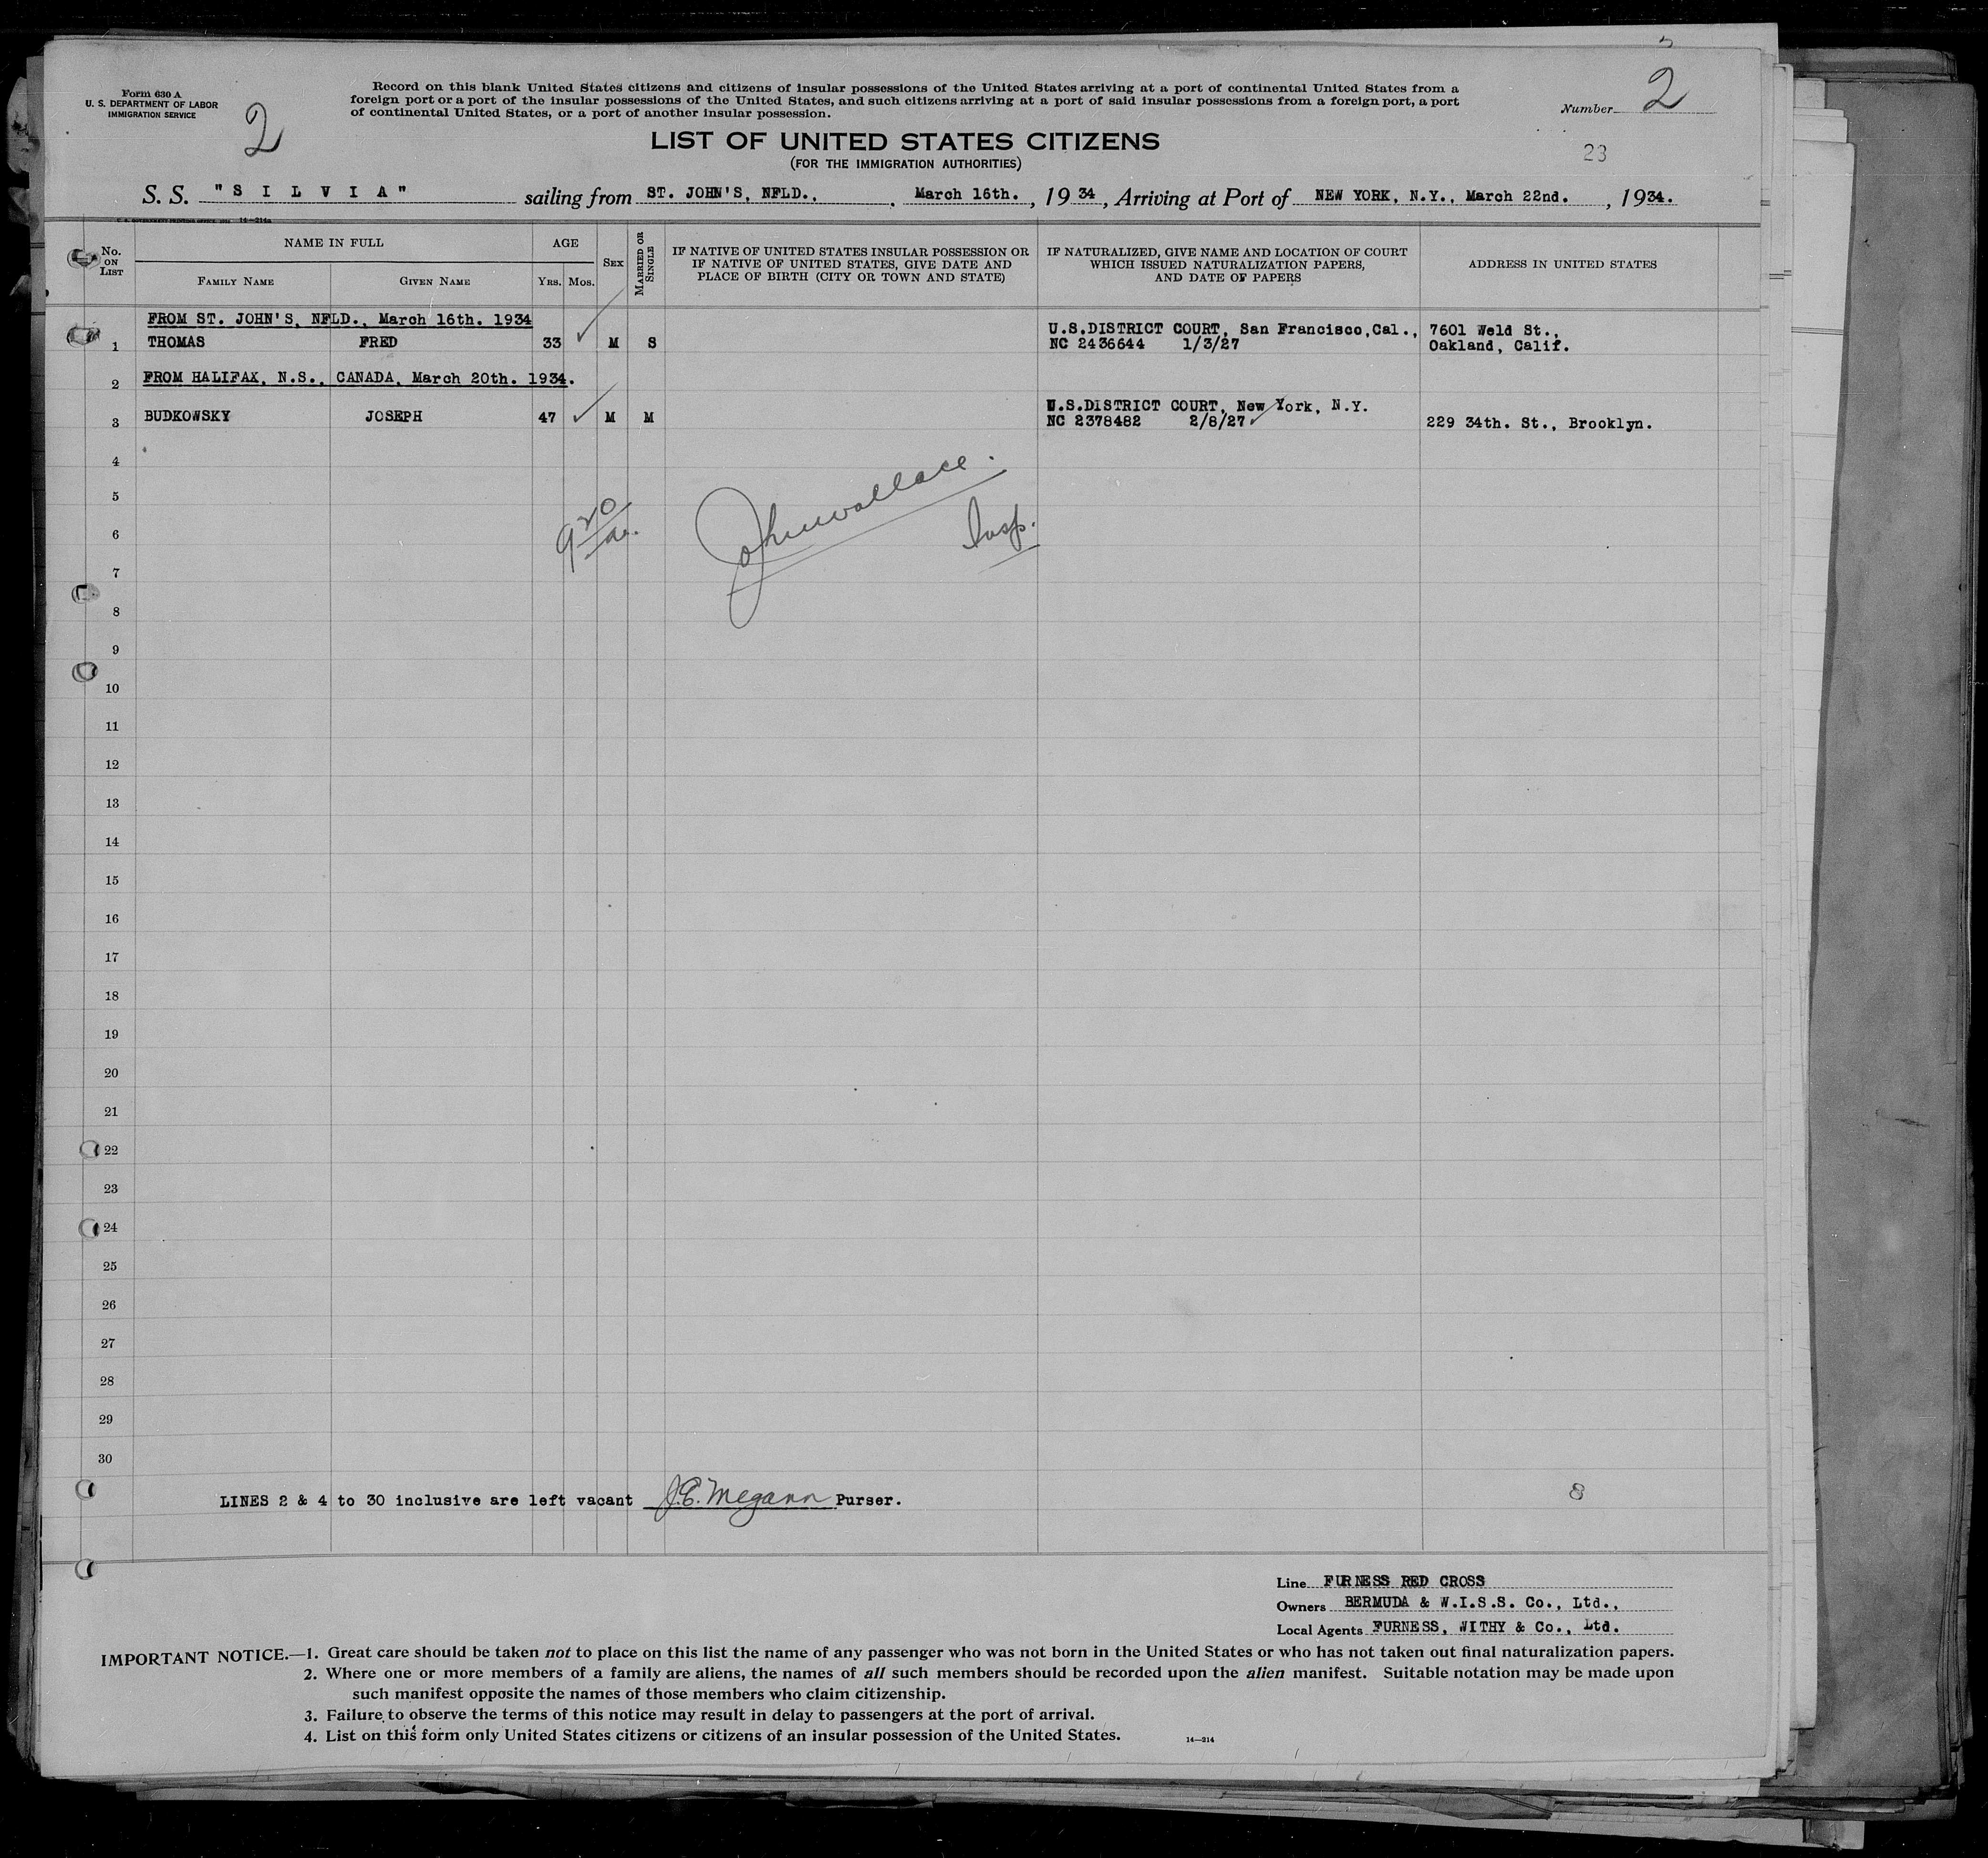 Form 630 A
U. S. DEPARTMENT OF LABOR
IMMIGRATION SERVICE
2
Record on this blank United States citizens and citizens of insular possessions of the United States arriving at a port of continental United States from a
foreign port or a port of the insular possessions of the United States, and such citizens arriving at a port of said insular possessions from a foreign port, a port
of continental United States, or a port of another insular possession.
Number 2
LIST OF UNITED STATES CITIZENS
(FOR THE IMMIGRATION AUTHORITIES)
23
S. S. "S I L V I A" sailing from ST. JOHN'S, NFLD., March 16th. , 19 34 , Arriving at Port of NEW YORK, N.Y., March 22nd. , 1934.
No. ON LIST
NAME IN FULL
FAMILY NAME
GIVEN NAME
AGE
YRS.
MOS.
SEX
MARRIED OR SINGLE
IF NATIVE OF UNITED STATES INSULAR POSSESSION OR
IF NATIVE OF UNITED STATES, GIVE DATE AND
PLACE OF BIRTH (CITY OR TOWN AND STATE)
IF NATURALIZED, GIVE NAME AND LOCATION OF COURT
WHICH ISSUED NATURALIZATION PAPERS,
AND DATE OF PAPERS
ADDRESS IN UNITED STATES
FROM ST. JOHN'S, NFLD., March 16th. 1934
U.S.DISTRICT COURT, San Francisco,Cal., 7601 Weld St.,
1 THOMAS FRED 33 M S NC 2436644 1/3/27 Oakland, Calif.
2 FROM HALIFAX, N.S., CANADA, March 20th. 1934.
U.S.DISTRICT COURT, New York, N.Y.
3 BUDKOWSKY JOSEPH 47 M M NC 2378482 2/8/27 229 34th. St., Brooklyn.
4
5
John Wallace.
6
920
Insp.
7
8
9
10
11
12
13
14
15
16
17
18
19
20
21
22
23
24
25
26
27
28
29
30
LINES 2 & 4 to 30 inclusive are left vacant J.E. Megann Purser.
8
Line FURNESS RED CROSS
Owners BERMUDA & W.I.S.S. Co., Ltd.,
Local Agents FURNESS, WITHY & Co., Ltd.
IMPORTANT NOTICE.—1. Great care should be taken not to place on this list the name of any passenger who was not born in the United States or who has not taken out final naturalization papers.
2. Where one or more members of a family are aliens, the names of all such members should be recorded upon the alien manifest. Suitable notation may be made upon
such manifest opposite the names of those members who claim citizenship.
3. Failure to observe the terms of this notice may result in delay to passengers at the port of arrival.
4. List on this form only United States citizens or citizens of an insular possession of the United States.
14—214